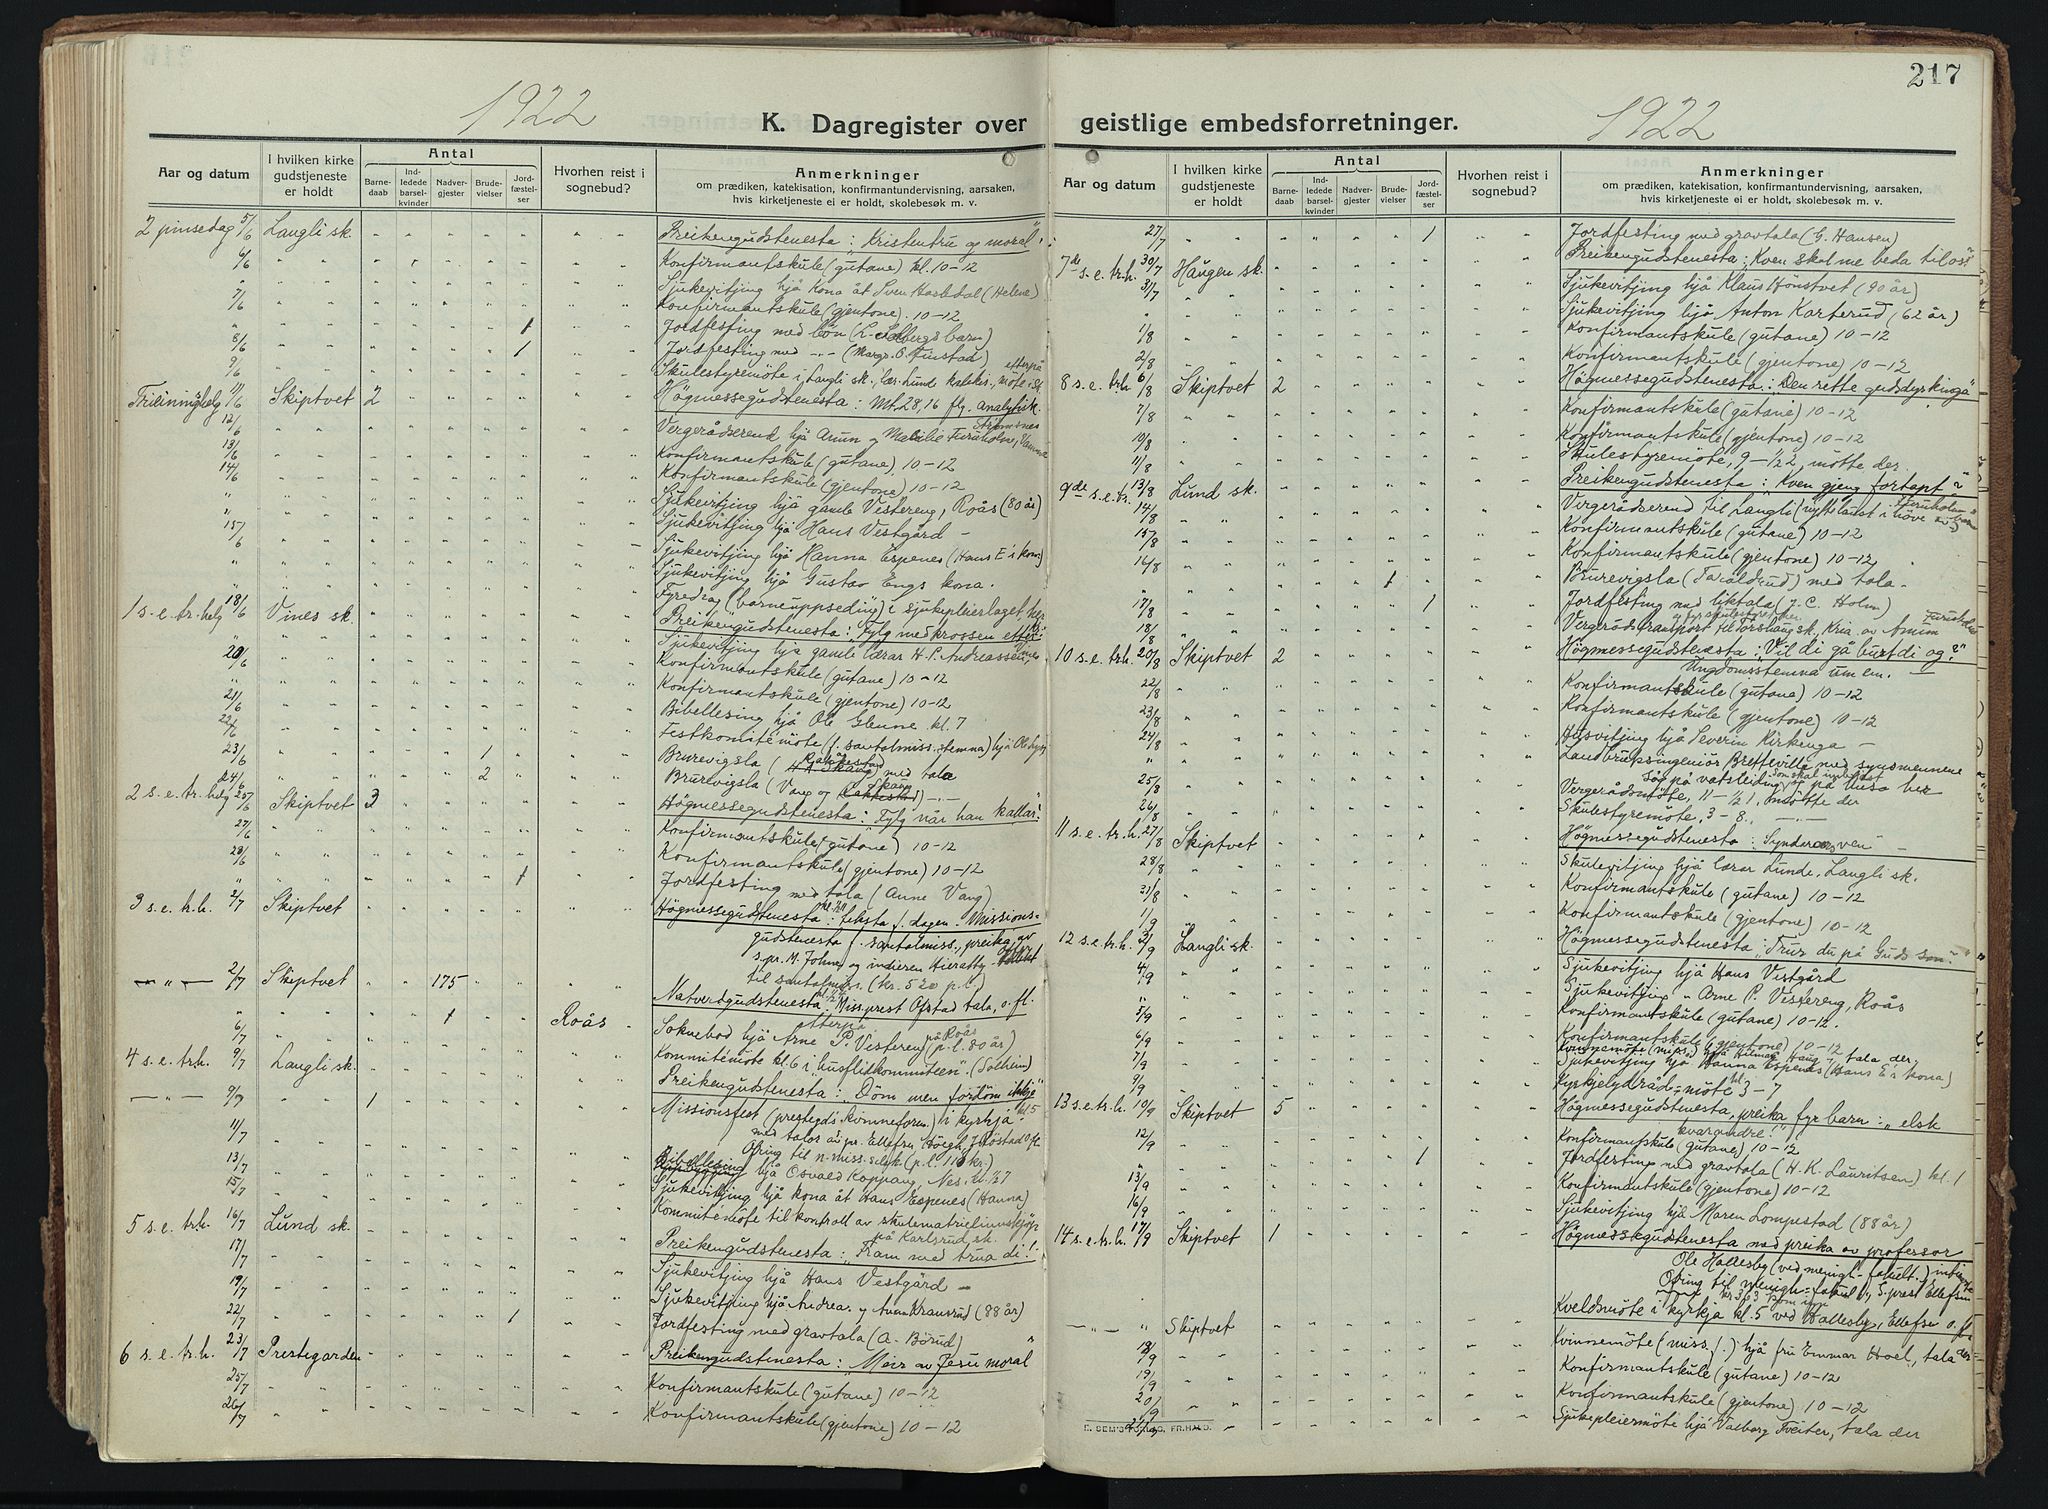 217
1922
K. Dagregister over
Aar og datum
I hvilken kirke gudstjeneste er holdt
Antal
Barnedaab
Indledede barselkvinder
Nadvergjester
Brudevielser
Jordfæstelser
Hvorhen reist i sognebud?
Anmerkninger
om prædiken, katekisation, konfirmantundervisning, aarsaken, hvis kirketjeneste ei er holdt, skolebesøk m. v.
2 pinsedag 5/6 Langli sk. Preikengudstenesta: Kristentru og moral!
6/6 Konfirmantskule (gutane) kl. 10-12
" Sjukevitjing hjå kona åt Sven Hasledal (Helene)
7/6 Konfirmantskule (gjentone). 10-12
" 1 Jordfesting med bön (L. Solbergs barn)
8/6 1 Jordfesting med -"- (Margr. O. Finstad)
9/6 Skulestyremöte i Langli sk., lær. Lunde katekis., möte i st. etterpå
Trieiningshelg 11/6 Skiptvet 2 Högmessegudstenesta: Mt. 28,16 flg. analytisk.
12/6 Vergerådserend hjå Arum og Matilie Furuholm, Strömsnes, Vamma
13/6 Konfirmantskule (gutane). 10-12
14/6 Konfirmantskule (gjentone) 10-12
" Sjukevitjing hjå gamle Vestereng, Roås (80 år)
" Sjukevitjing hjå Hans Vestgård -
15/6 Sjukevitjing hjå Hanna Espenes (Hans E's kona)
" Sjukevitjing hjå Gustav Engs kona.
" Fyredrag (barneuppseding) i sjukepleierlaget, her
1 s. e. tr. helg 18/6 Vines sk. Preikengudstenesta: Fylg med krossen etter!
" Sjukevitjing hjå gamle lærar H. P. Andreassen, Vines
20/6 Konfirmantskule (gutane) 10-12
" Konfirmantskule (gjentone) 10-12
21/6 Bibellesing hjå Ole Glenne kl. 7
22/6 Festkomitémöte (f. santalmiss. stemna) hjå Ole Lysø
23/6 1 Brurevigsla (Rakkestad) med tala
24/6 2 Brurevigsla (Vang og Skaug) -"-
2 s. e. tr. helg 25/6 Skiptvet 3 Högmessegudstenesta: Fylg når han kallar!
27/6 Konfirmantskule (gutane) 10-12
28/6 Konfirmantskule (gjentone) 10-12
" 1 Jordfesting med tala (Anne Vang)
3 s. e. tr. h. 2/7 Skiptvet Högmessegudstenesta kl. 11: teksta f. dagen. Missions=
gudstenesta f. santalmiss., preika av
s. pr. M. Johne og indieren Hieratty. Offer
til santalmiss. (kr. 520 p. l.)
-"- 2/7 Skiptvet 175 Natverdgudstenesta kl. 1/2. Miss. prest Ofstad tala, o. fl. etterpå
" 1 Roås Soknebod hjå Arne P. Vestereng på Roås (p. l. 80 år)
6/7 Kommitémöte kl. 6 i "husflidkommiteen". (Solheim)
4 s. e. tr. h. 9/7 Langli sk. Preikengudstenesta: "Döm men fordöm ikkje"
-"- 9/7 1 Missionsfest (prestegjds. kvinneforen.) i kyrkja kl. 5
med talor av pr. Ellefsen Höegh, J. Röstad o fl.
Ofring til n. miss. selsk. (p. l. 116 kr.)
11/7 Bibellesing hjå Osvald Koppang, Nes. kl. 7
13/7 Sjukevitjing hjå kona åt Hans Espenes (Hanna)
15/7 Kommitémöte til kontroll av skulematrielinnskjöp på Karlsrud sk.
5 s. e. tr. h. 16/7 Lund sk. Preikengudstenesta: "Fram med trua di!"
17/7 Sjukevitjing hjå Hans Vestgård -
19/7 Sjukevitjing hjå Andreas og Anne Kransrud (88 år)
22/7 1 Jordfesting med gravtala (A. Börud)
6 s. e. tr. h. 23/7 Prestegarden Preikengudstenesta: "Meir av Jesu moral"
25/7 Konfirmantskule (gutane) 10-12
26/7 Konfirmantskule (gjentone) 10-12
geistlige embedsforretninger.
1922
Aar og datum
I hvilken kirke gudstjeneste er holdt
Antal
Barnedaab
Indledede barselkvinder
Nadvergjester
Brudevielser
Jordfæstelser
Hvorhen reist i sognebud?
Anmerkninger
om prædiken, katekisation, konfirmantundervisning, aarsaken, hvis kirketjeneste ei er holdt, skolebesøk m. v.
27/7 1 Jordfesting med gravtala (G. Hansen)
7de s. e. tr. h. 30/7 Haugen sk. Preikengudstenesta: "Kven skal me beda til os?"
31/7 Sjukevitjing hjå Klaus Hönstvet (90 år)
" Sjukevitjing hjå Anton Karterud (62 år)
1/8 Konfirmantskule (gutane) 10-12
2/8 Konfirmantskule (gjentone) 10-12
8 s. e. tr. h. 6/8 Skiptvet 2 Högmessegudstenesta: "Den rette gudsdyrkinga"
7/8 Konfirmantskule (gutane) 10-12
10/8 Konfirmantskule (gjentone) 10-12
11/8 Skulestyremöte, 9-1/2 2, mötte der
9de s. e. tr. 13/8 Lund sk. Preikengudstenesta: "Kven gjeng fortapt?"
14/8 Vergerådserend til Langli
15/8 Konfirmantskule (gutane) 10-12
16/8 Konfirmantskule (gjentone) 10-12
" 1 Brurevigsla (Taraldrud) med tala.
17/8 1 Jordfesting med liktala (J. C. Holm)
18/8 Vergerådstransport til Torshaug sk., Kria av Arnim Furuholm
10 s. e. tr. h. 20/8 Skiptvet 2 Högmessegudstenesta: "Vil di gå burt di og?"
Ungdomsstemna um em.
22/8 Konfirmantskule (gutane) 10-12
23/8 Konfirmantskule (gjentone) 10-12
24/8 Husvitjing hjå Severin Kirkenga -
" Landbruksingeniör Bretteville med synsmennene
såg på vatsleiding som skal innlagast på huso her
25/8 Vergerådsmöte, 11-1/2 1, mötte der
26/8 Skulestyremöte, 3-8. -"-
11 s. e. tr. h. 27/8 Skiptvet Högmessegudstenesta: Syndarens ven -
28/8 Skulevitjing hjå lærar Lunde, Langli sk.
31/8 Konfirmantskule (gutane) 10-12
1/9 Konfirmantskule (gjentone) 10-12
12 s. e. tr. h. 3/9 Langli sk. Högmessegudstenesta: "Trur du på Guds son?"
4/9 Sjukevitjing hjå Hans Vestgård
" Sjukevitjing " Arne P. Vestereng, Roås
5/9 Konfirmantskule (gutane) 10-12.
6/9 Konfirmantskule (gjentone) 10-12
7/9 Kvinnemöte (miss.) hjå Hilmar Haug, tala der.
" Sjukevitjing hjå Hanna Espenes (Hans E's kona)
9/9 Kyrkjelydråd=möte kl 3-7
13 s. e. tr. h. 10/9 Skiptvet 5 Högmessegudstenesta, preika fyr barn: "elsk
kvarandre!"
12/9 Konfirmantskule (gutane) 10-12
" 1 Jordfesting med gravtala (H. K. Lauritsen) kl. 1
13/9 Konfirmantskule (gjentone) 10-12
16/9 Sjukevitjing hjå Maren Lompestad (88 år)
14 s. e. tr. h. 17/9 Skiptvet 1 Högmessegudstenesta med preika av professor
Ole Hallesby (ved menigh.-fakult.)
Ofring til menigh-fakult., S. prest Ellefsen
kr. 363 kom inn
-"- " Skiptvet Kveldsmöte i kyrkja kl. 5 ved Hallesby, Ellefsen o. fl.
18/9 Kvinnemöte (miss.) hjå fru Emmar Hoel, tala der
19/9 Konfirmantskule (gutane) 10-12
20/9 Konfirmantskule (gjentone) 10-12
21/9 Sjukepleiermöte hjå Valborg Tveiter, tala der
E. SEM'S FORLAG, FR.HALD.